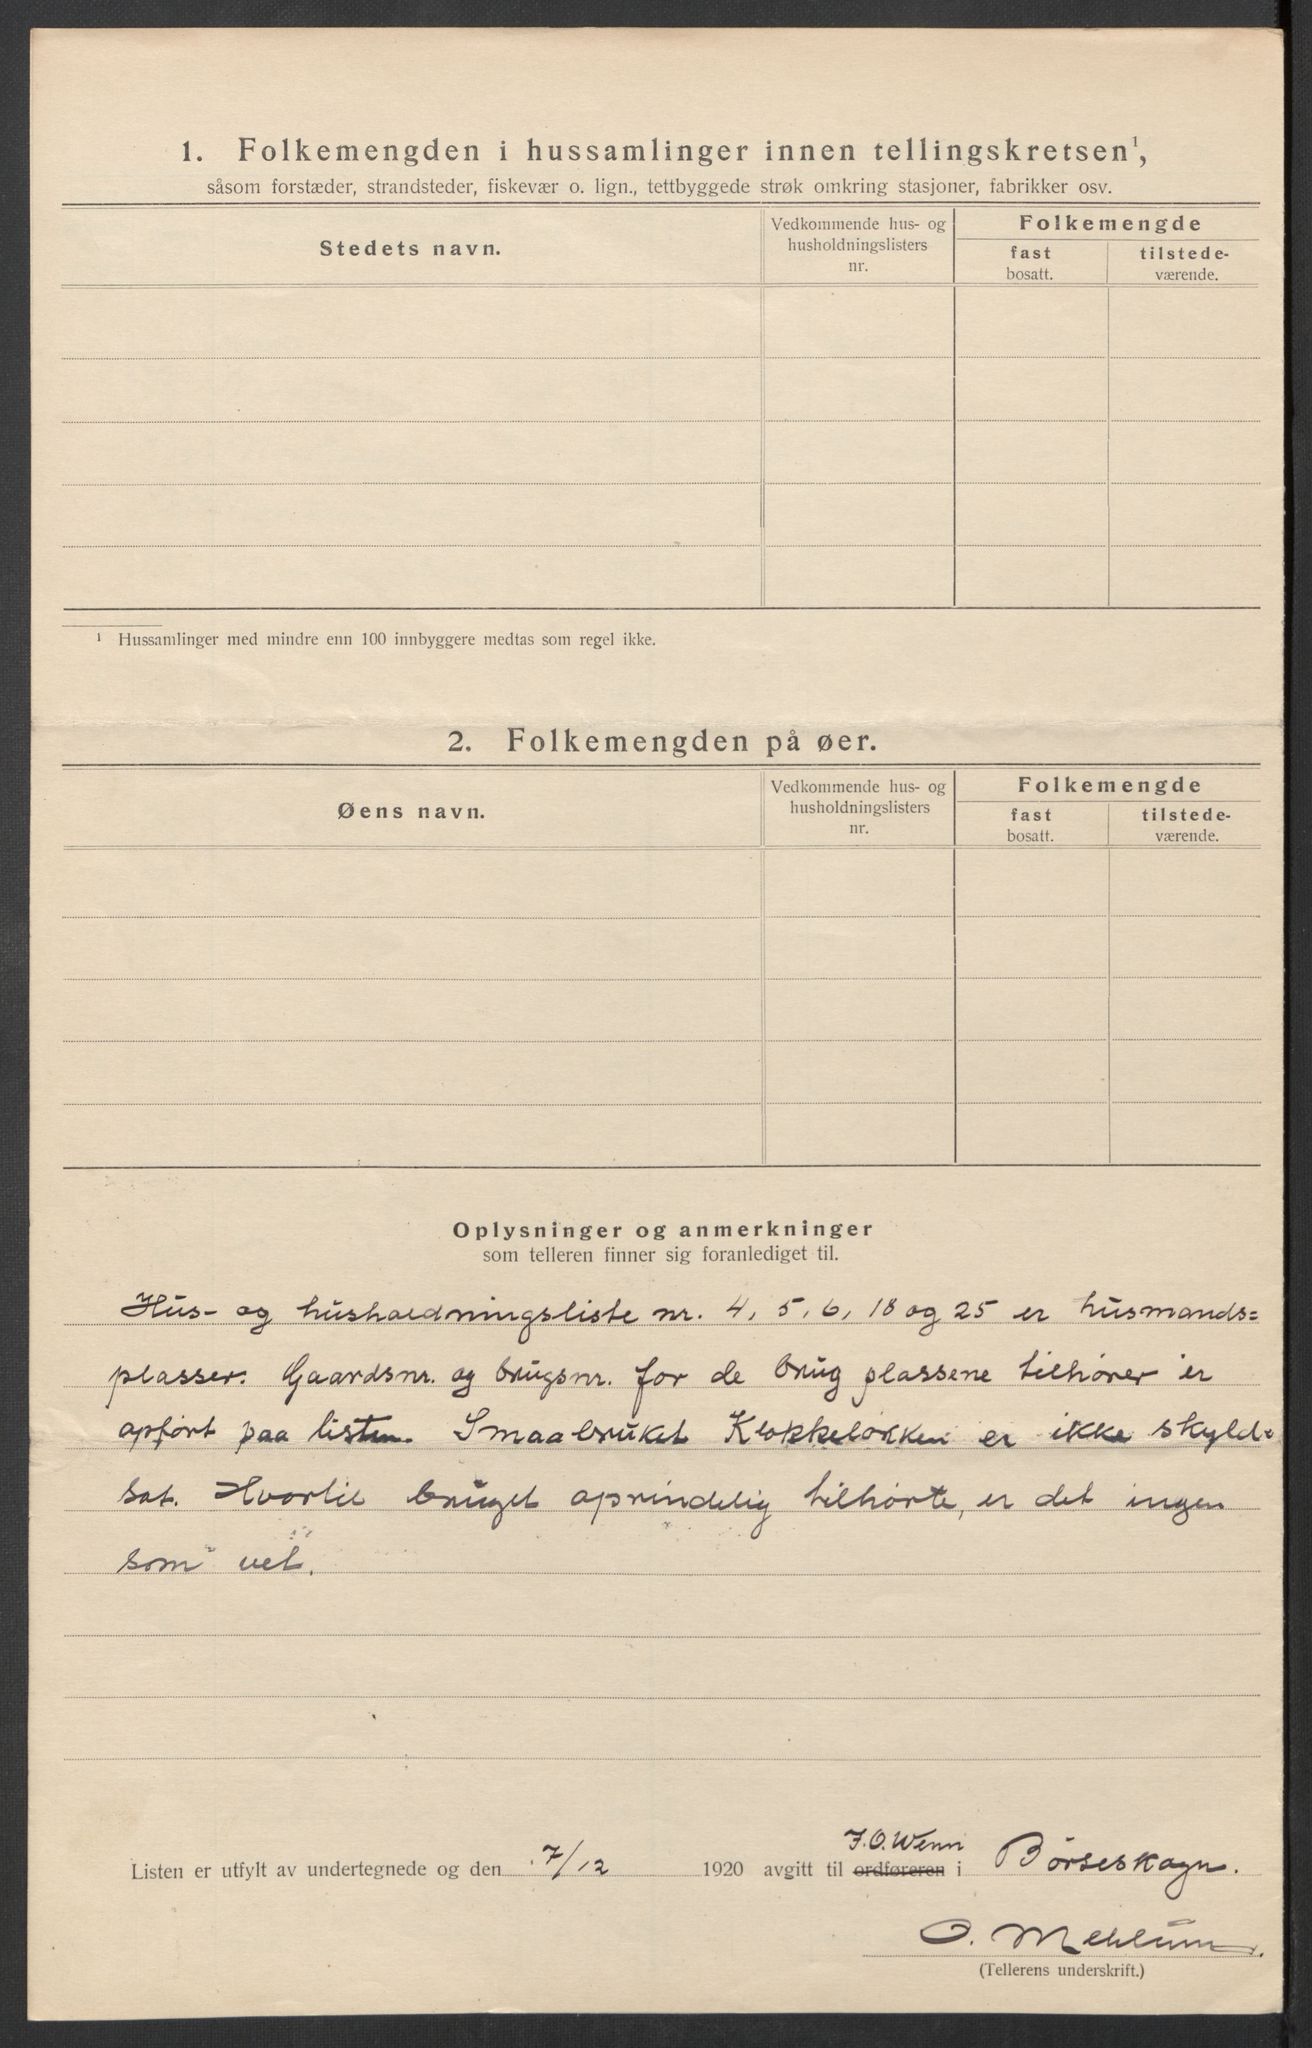 1. Folkemengden i hussamlinger innen tellingskretsen¹,
såsom forstæder, strandsteder, fiskevær o. lign., tettbyggede strøk omkring stasjoner, fabrikker osv.
Stedets navn.
Vedkommende hus- og
husholdningslisters
nr.
Folkemengde
fast
bosatt.
tilstede-
værende.
¹ Hussamlinger med mindre enn 100 innbyggere medtas som regel ikke.
2. Folkemengden på øer.
Øens navn.
Vedkommende hus- og
husholdningslisters
nr.
Folkemengde
fast
bosatt.
tilstede-
værende.
Oplysninger og anmerkninger
som telleren finner sig foranlediget til.
Hus- og husholdningsliste nr. 4, 5, 6, 18 og 25 er husmands=
plasser. Gaardsnr. og brugsnr. for de brug plassene tilhører er
opført paa listen. Smaabruket Klokkeløkken er ikke skyld=
sat. Hvortil bruget oprindelig tilhørte, er det ingen
som vet.
J. O. Wenn
Listen er utfylt av undertegnede og den 7/12 1920 avgitt til ordføreren i Børseskogn.
O. Mehlum.
(Tellerens underskrift.)